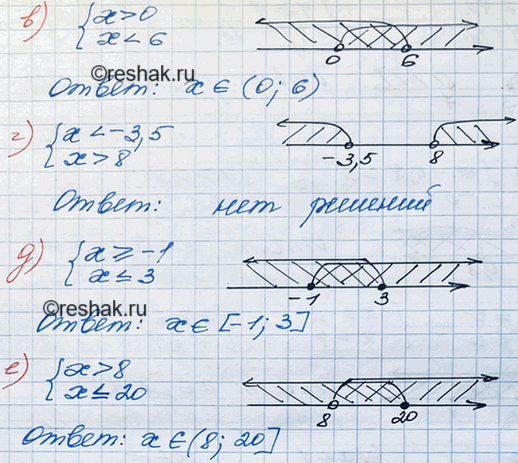 в) { x>0
x<6
0 6
©reshak.ru
Ответ: x ∈ (0; 6)
г) { x<-3,5
x>8
-3,5 8
Ответ: нет решений
д) { x≥-1
x≤3
-1 3
©reshak.ru
Ответ: x ∈ [-1; 3]
е) { x>8
x≤20
8 20
Ответ: x ∈ (8; 20]